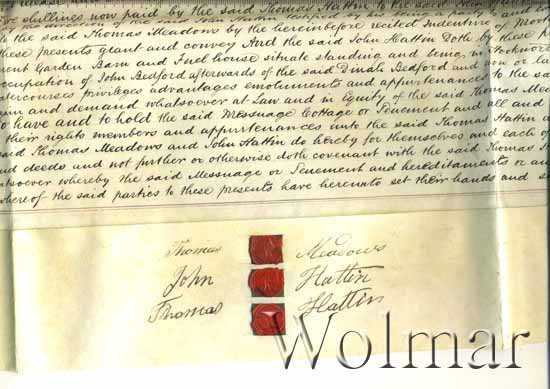 release
Five shillings now paid by the said Thomas Hattin to the said
the direction of the said John Hattin testified by his
to the said Thomas Meadows by the hereinbefore recited Indenture of
these presents grant and convey And the said John Hattin Doth by these
ment Garden Barn and Fuel house situate standing and being in
occupation of John Bedford afterwards of the said Dinah Bedford and now or la
tercourses privileges advantages emoluments and appurtenances to the sa
aim and demand whatsoever at Law and in Equity of the said Thomas Mea
To have and to hold the said Messuage Cottage or Tenement and all and
their rights members and appurtenances unto the said Thomas Hattin
said Thomas Meadows and John Hattin do hereby for themselves and each of
and deeds and not further or otherwise doth covenant with the said Thomas
atsoever whereby the said Messuage or Tenement and hereditaments or an
whereof the said parties to these presents have hereunto set their hands and s
Thomas Meadows
John Hattin
Thomas Hattin
Wolmar